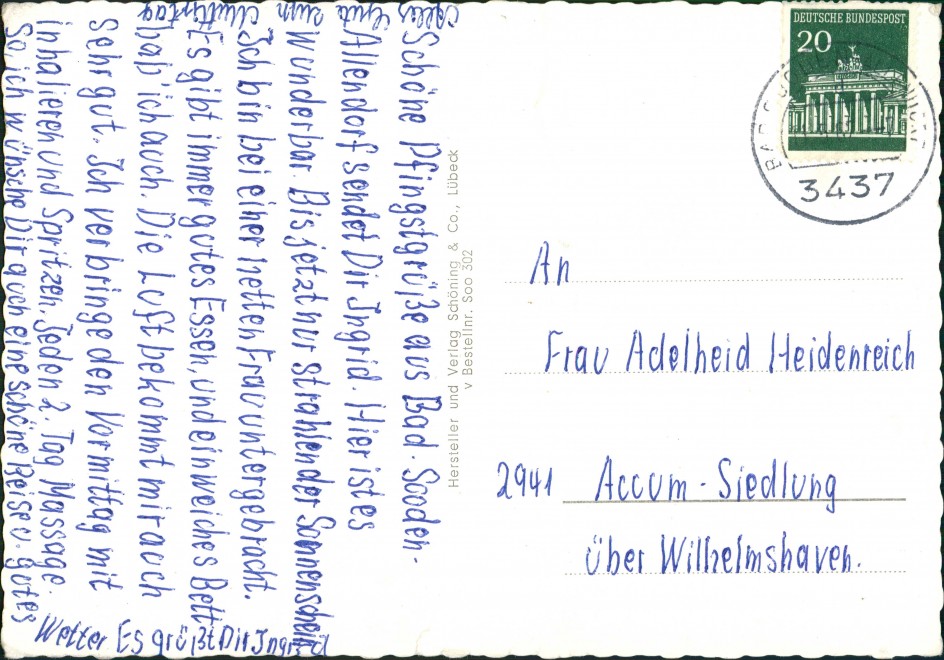 Alles Gute zum Muttertag
Schöne Pfingstgrüße aus Bad-Sooden-
Allendorf sendet Dir Ingrid. Hier ist es
Wunderbar. Bis jetzt nur strahlender Sonnenschein
Ich bin bei einer netten Frau untergebracht.
Es gibt immer gutes Essen, und ein weiches Bett
hab' ich auch. Die Luft bekommt mir auch
sehr gut. Ich verbringe den Vormittag mit
inhalieren und Spritzen. Jeden 2. Tag Massage.
So, ich wünsche Dir auch eine schöne Reise u. gutes
Wetter Es grüßt Dir Ingrid
Hersteller und Verlag Schöning & Co., Lübeck
v Bestellnr. Soo 302
DEUTSCHE BUNDESPOST
20
3437
An
Frau Adelheid Heidenreich
2941 Accum-Siedlung
über Wilhelmshaven.